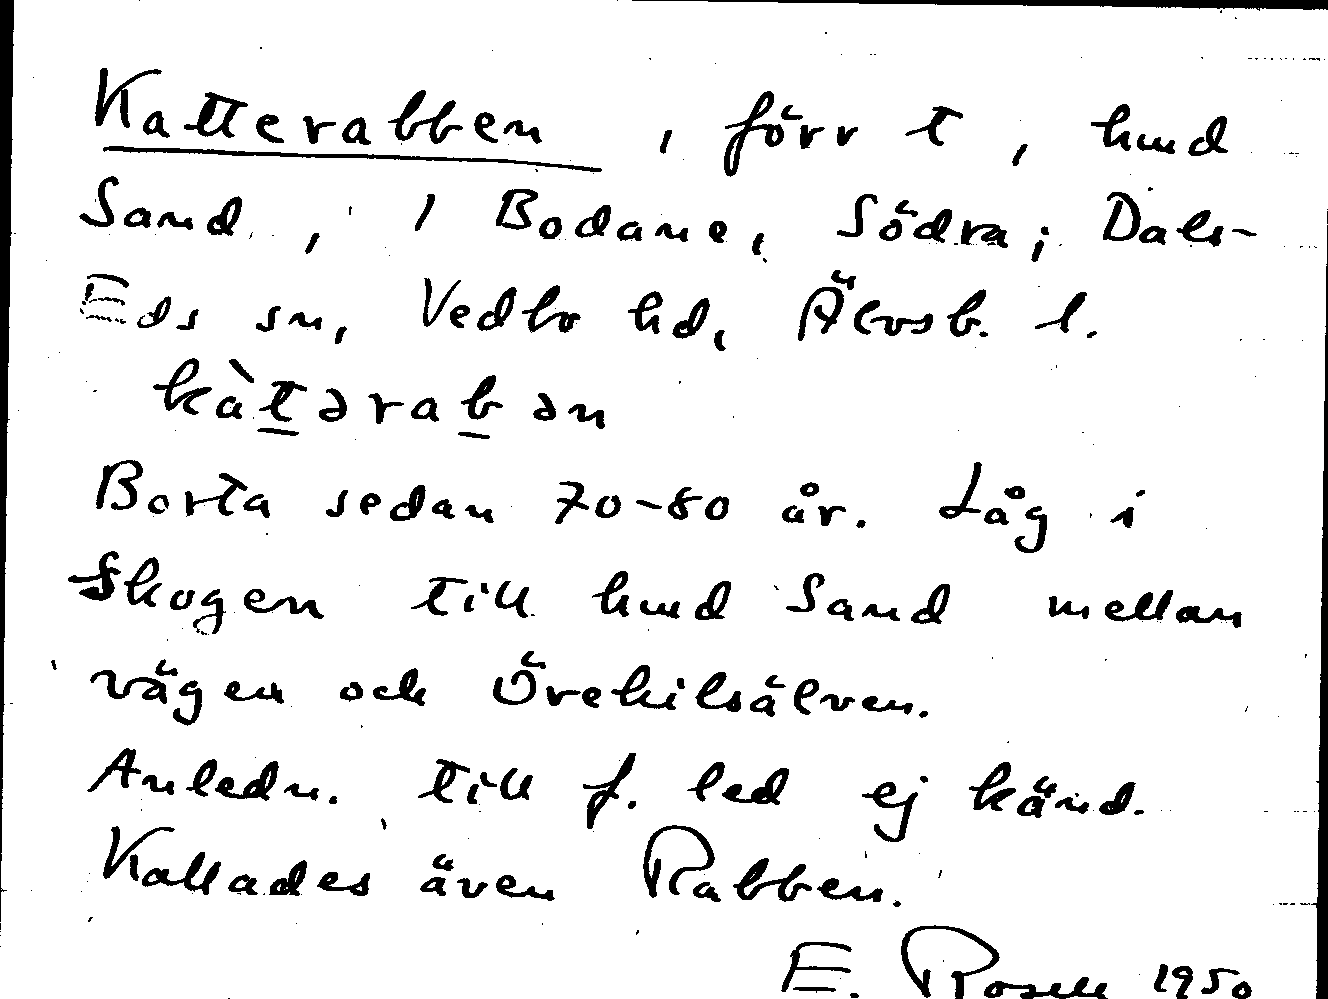 Katterabben, förr t, hmd
Sand, 1 Bodane, Södra; Dals-
Eds sn, Vedbo hd, Älvsb. l.
kàtərabən
Borta sedan 70-80 år. Låg i
skogen till hmd Sand mellan
vägen och Örekilsälven.
Anledn. till f. led ej känd.
Kallades även Rabben.
E. Rosell 1950